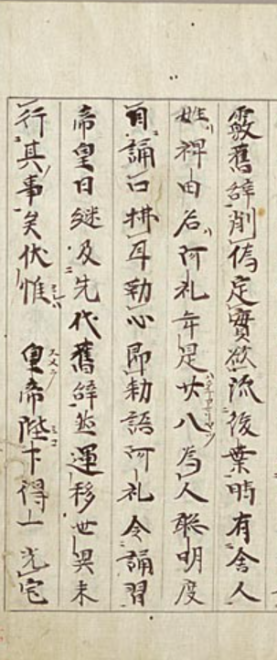 覈舊辭削偽定實欲流後葉時有舍人
姓稗田名阿礼年是廿八為人聡明度
目誦口拂耳勒心即勅語阿礼令誦習
帝皇日継及先代舊辞然運移世異未
行其事矣伏惟　皇帝陛下得一光宅